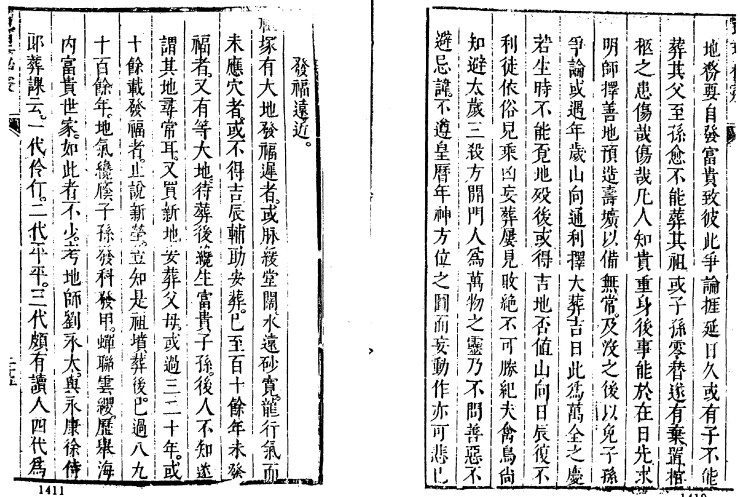 地務要自發富貴致彼此爭論捱延日久或有子不能
葬其父至孫愈不能葬其祖或子孫零替遂有棄置棺
柩之患傷哉傷哉凡人知貴重身後事能於在日先求
明師擇善地預造壽壙以備無常及沒之後以免子孫
爭論或遇年歲山向通利擇大葬吉日此爲萬全之慶
若生時不能覔地歿後或得吉地否值山向日辰復不
利徒依俗見乘凶妄葬屢見敗絕不可勝紀夫禽鳥尚
知避太歲三殺方開門人爲萬物之靈乃不問善惡不
避忌諱不遵皇曆年神方位之圖而妄動作亦可悲已
1410
發福遠近。
塚有大地發福遲者。或脉緩堂闊水遠砂寬。龍行氣而
未應穴者。或不得吉辰輔助安葬。已至百十餘年未發
福者。又有等大地。待葬後纔生富貴子孫。後人不知遂
謂其地尋常耳。又買新地安葬父母。或過三二十年。或
十餘載發福者。止說新塋。立知是祖墳葬後已過八九
十百餘年。地氣纔蔭子孫發科發甲。蟬聯雲纓。歷舉海
内富貴世家。如此者不少。考地師劉永太。與永康徐侍
郎葬課云。一代伶仃。二代平平。三代頗有讀人四代爲
二十五
1411